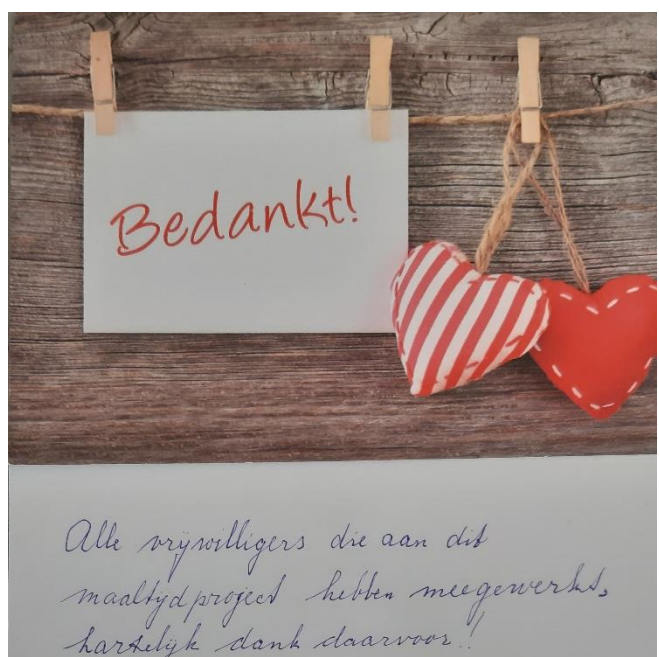 Bedankt!
Alle vrijwilligers die aan dit
maaltijdproject hebben meegewerkt,
hartelijk dank daarvoor!!